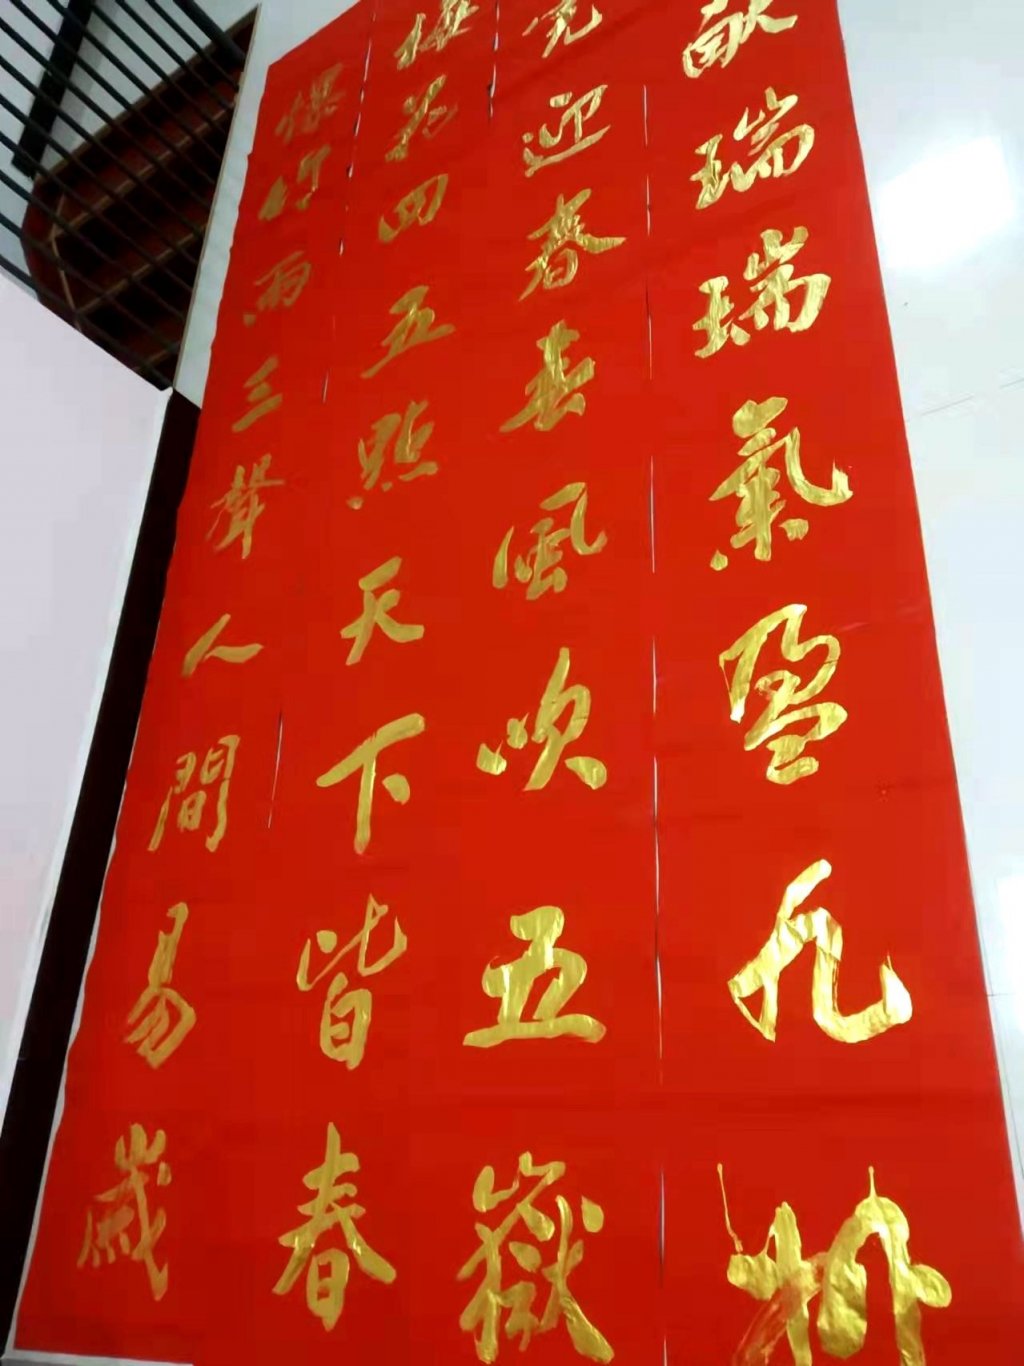 獻瑞瑞氣盈九州
迎春春風吹五嶽
梅花四五點天下皆春
爆竹兩三聲人間易歲